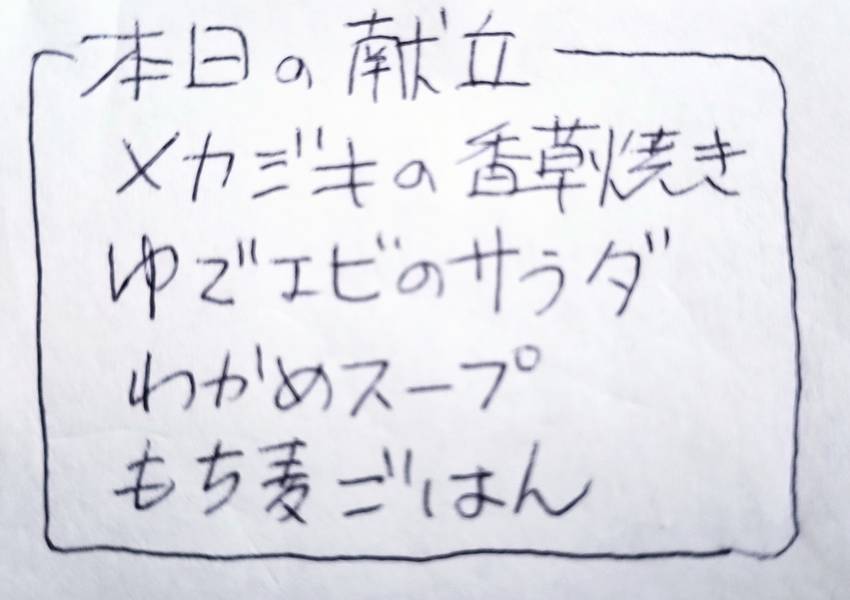 本日の献立
メカジキの香草焼き
ゆでエビのサラダ
わかめスープ
もち麦ごはん